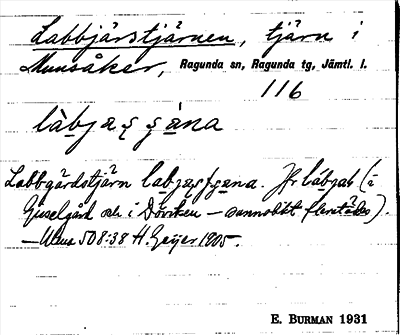 Labbjärstjärnen, tjärn i
Munsåker, Ragunda sn, Ragunda tg, Jämtl. l.
116
Labbgärdstjärn Jfr
Gisselgård och i Döviken – sannolikt flerstädes).
– Ulma 508:38 H. Geijer 1905.
E. BURMAN 1931